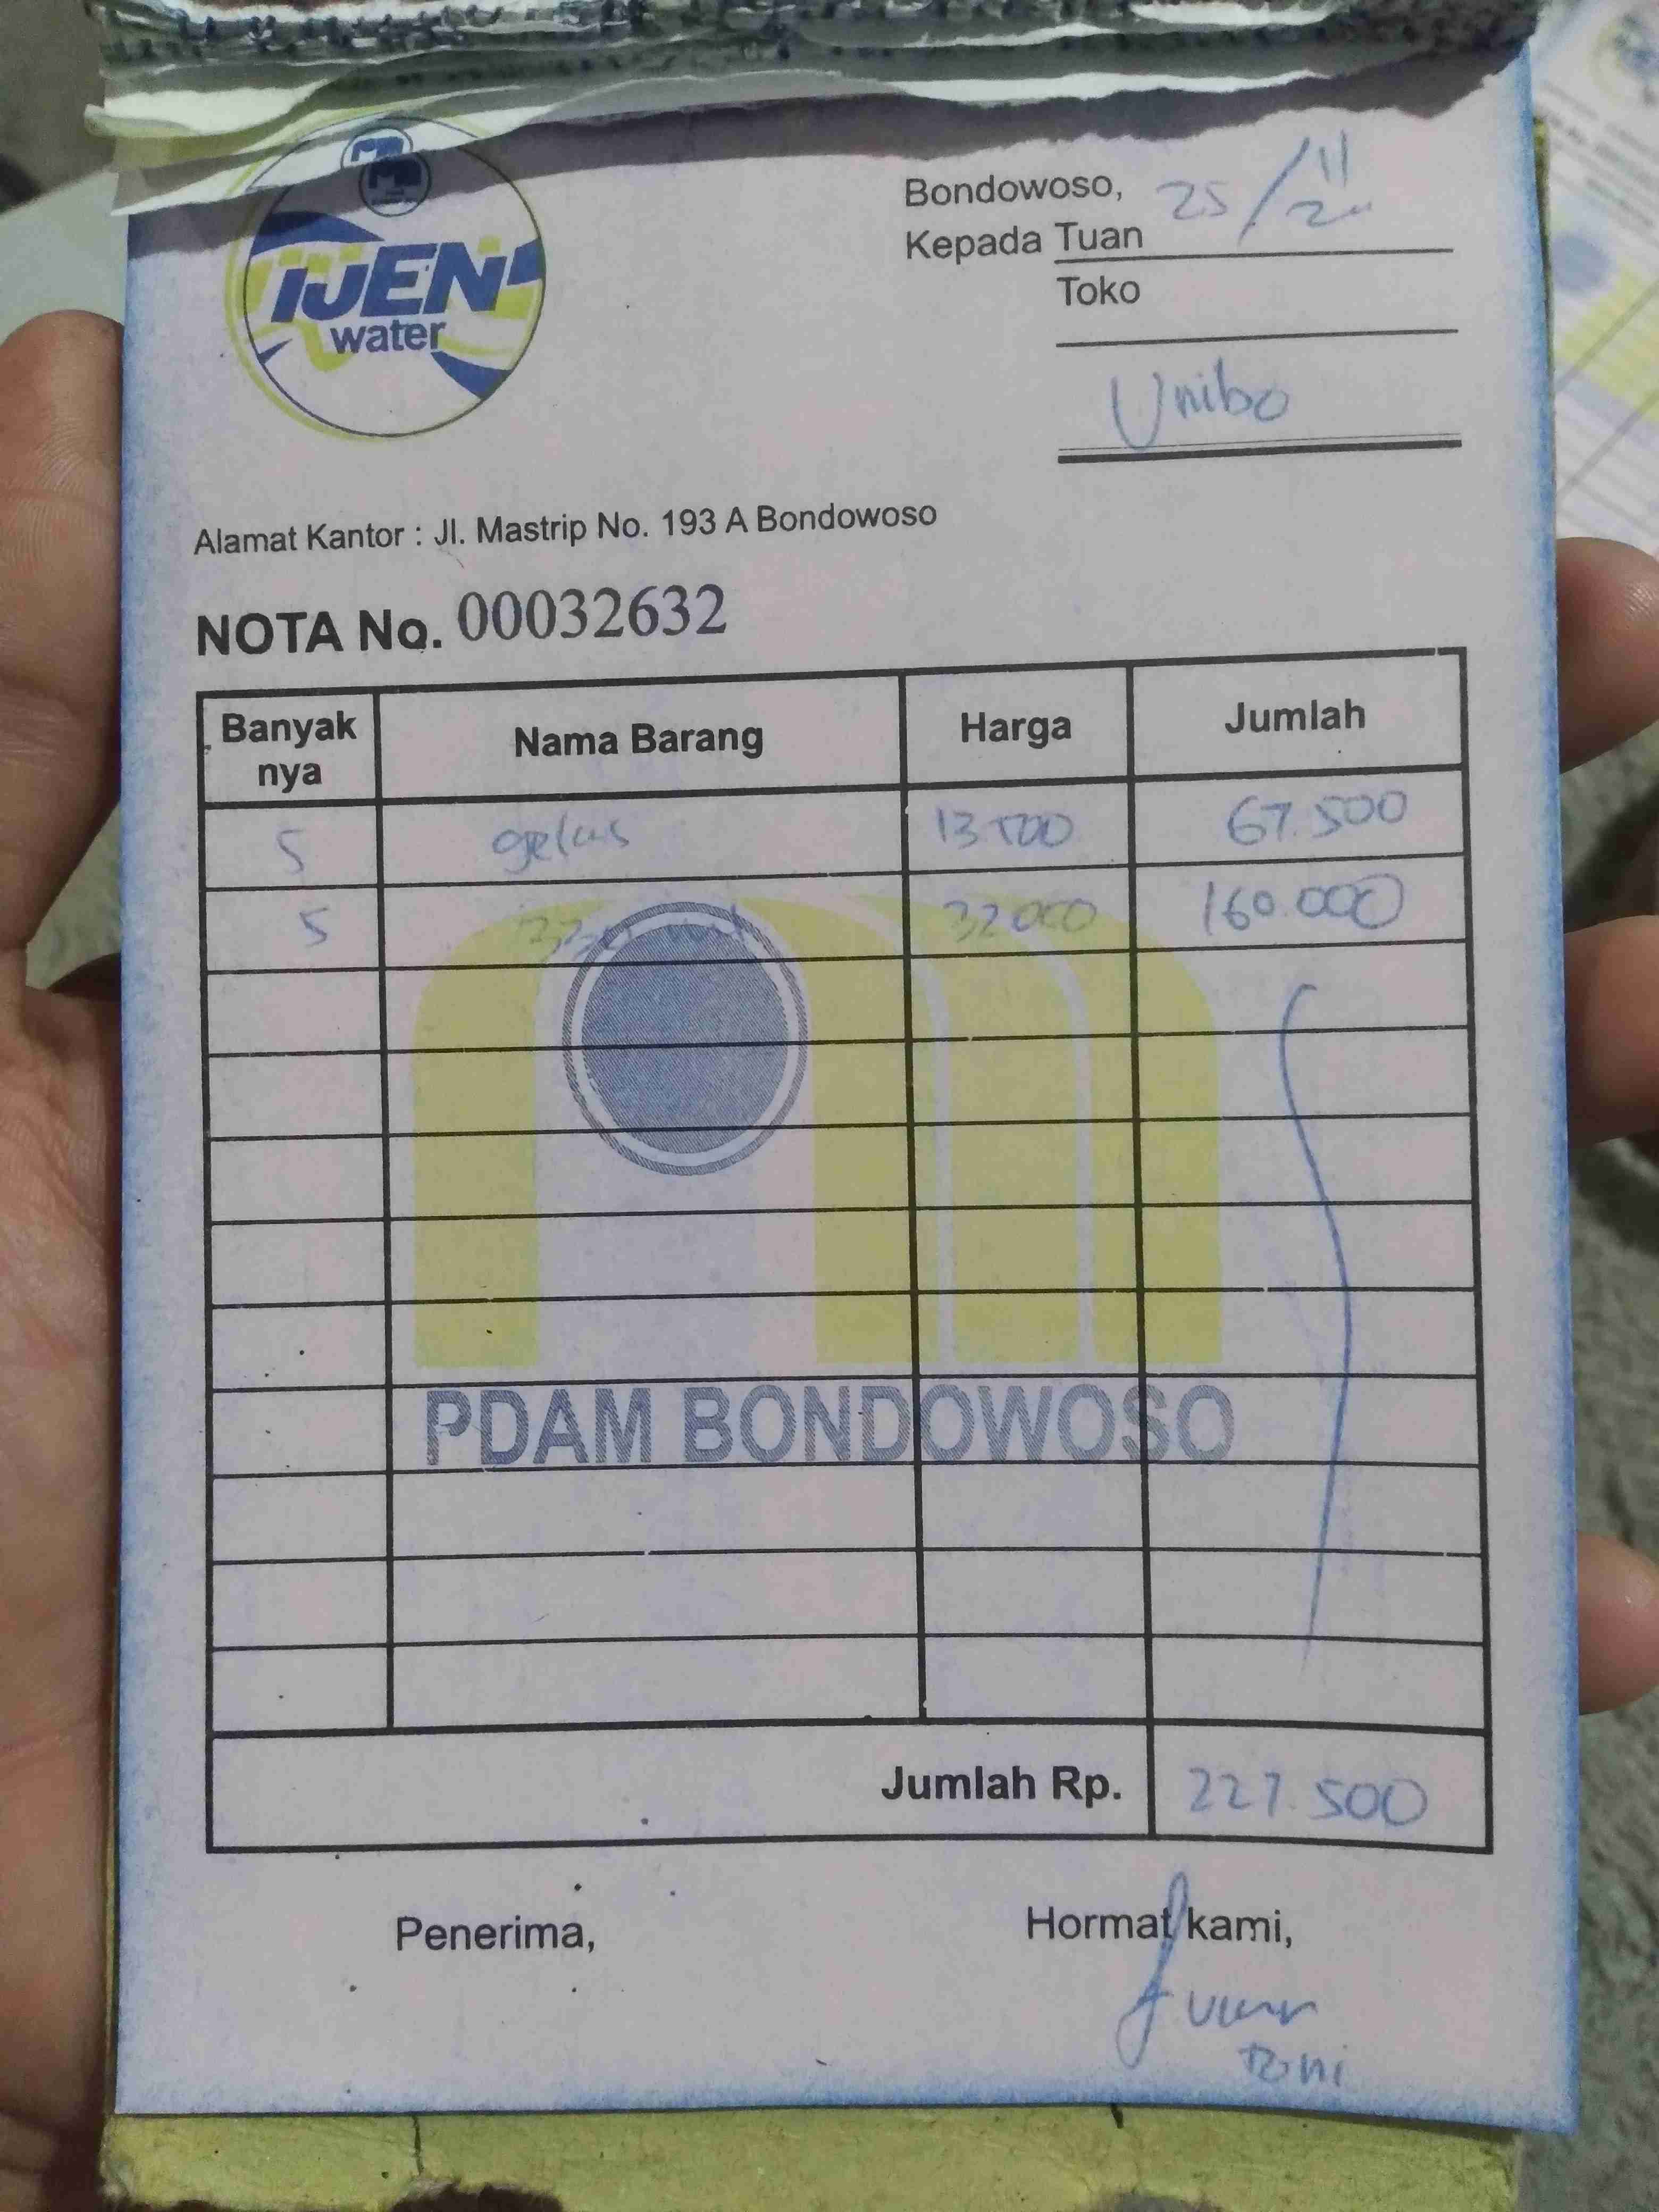 IJEN
water
Bondowoso, 25/11
Kepada Tuan
Toko
Unibo
Alamat Kantor : Jl. Mastrip No. 193 A Bondowoso
NOTA No. 00032632
Banyak nya Nama Barang Harga Jumlah
5 gelas 13.500 67.500
5 330 32000 160.000
PDAM BONDOWOSO
Jumlah Rp. 227.500
Penerima, Hormat kami,
Toni